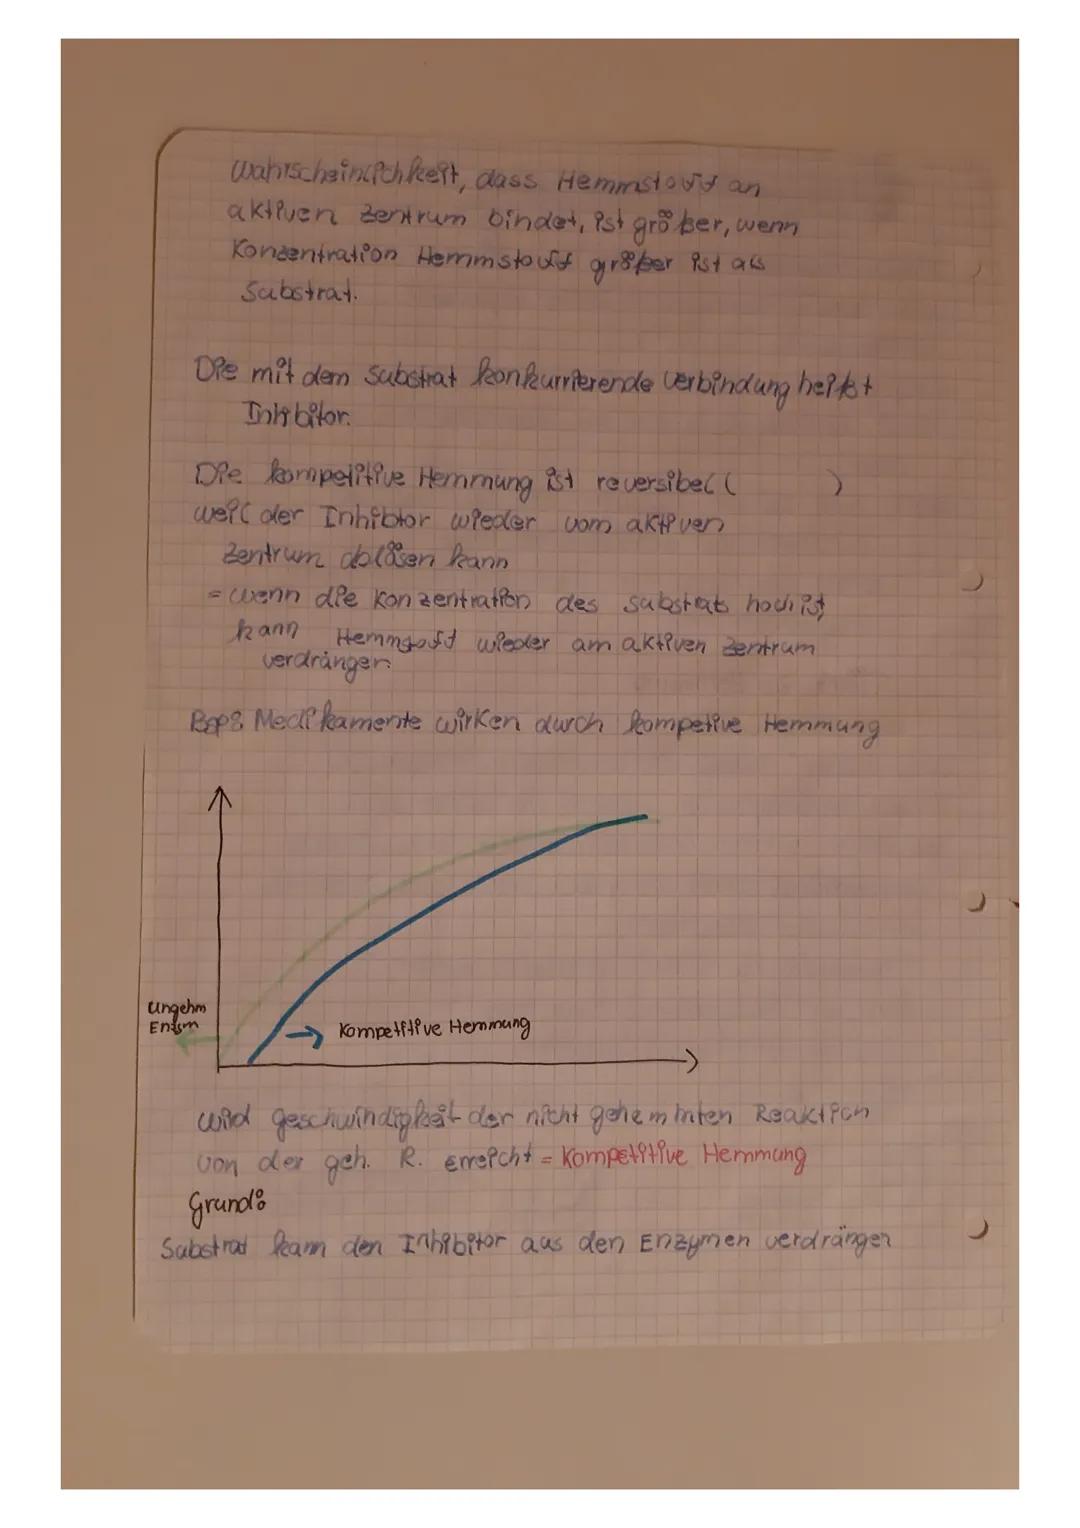 Wahrscheinlichkeit, dass Hemmstoff an
aktiven Zentrum bindet, ist größer, wenn
Konzentration Hemmstoff größer ist als
Substrat.
Die mit dem Substrat konkurrierende Verbindung heißt
Inhibitor.
Die kompetitive Hemmung ist reversibel ( )
weil der Inhibtor wieder vom aktiven
Zentrum ablösen kann
= wenn die Konzentration des Substrats hoch ist,
kann Hemmstoff wieder am aktiven Zentrum
verdrängen.
Bsp: Medikamente wirken durch kompetive Hemmung
Ungehm
Enzsm
Kompetitive Hemmung
Wird geschwindigkeit der nicht gehemmten Reaktion
von der geh. R. erreicht = Kompetitive Hemmung
Grund:
Substrat kann den Inhibitor aus den Enzymen verdrängen